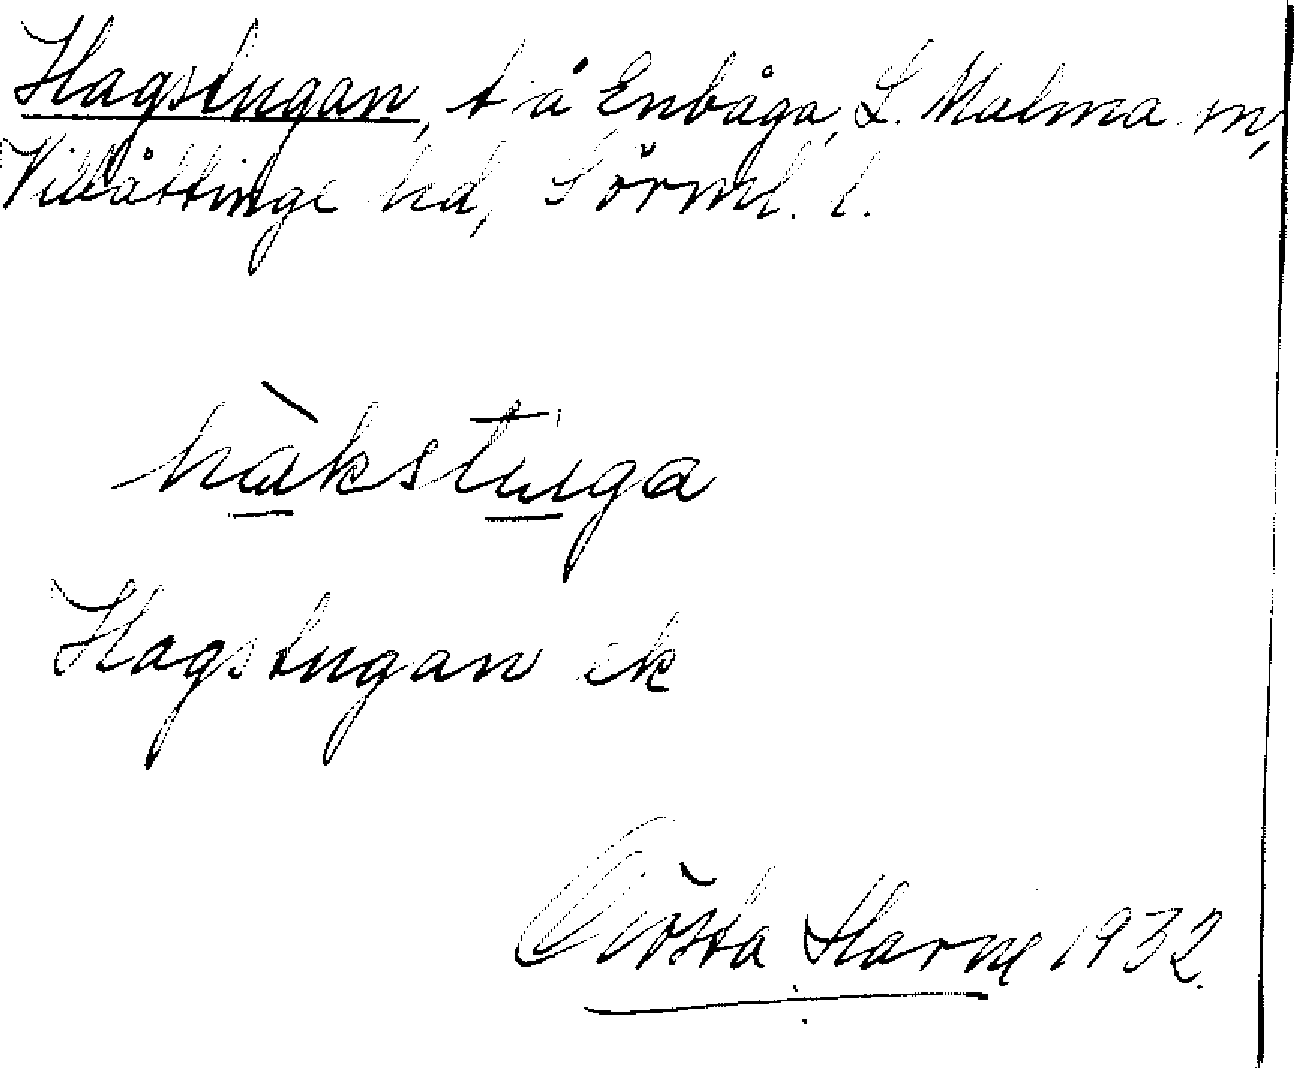 Hagstugan, t å Enbåga, L. Malma sn,
Villåttinge hd, Sörml. l.
hàkstuga
Hagstugan ek
Gösta Harne 1932.